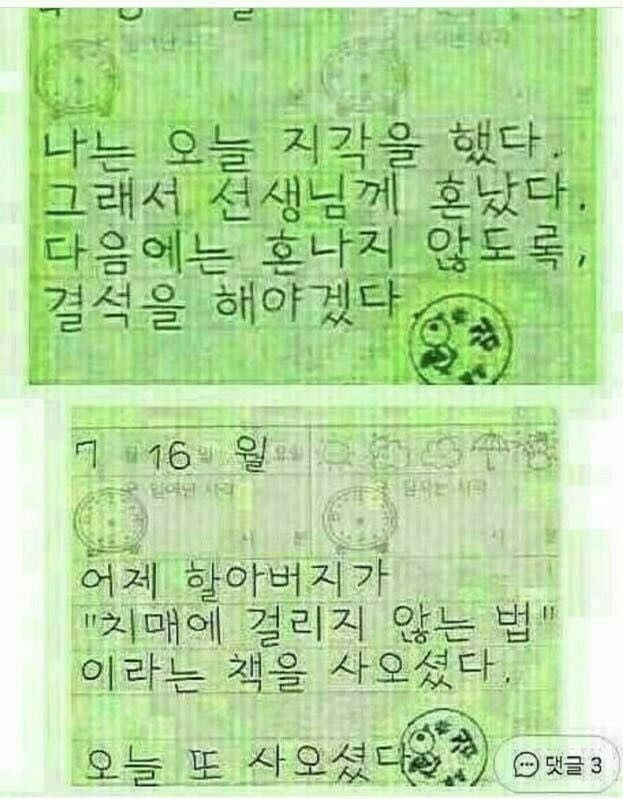 나는 오늘 지각을 했다.
그래서 선생님께 혼났다.
다음에는 혼나지 않도록,
결석을 해야겠다
7 월 16 일 월 요일
일어난 시각
잠자는 시각
시 분
시 분
어제 할아버지가
"치매에 걸리지 않는 법"
이라는 책을 사오셨다.
오늘 또 사오셨다
댓글 3